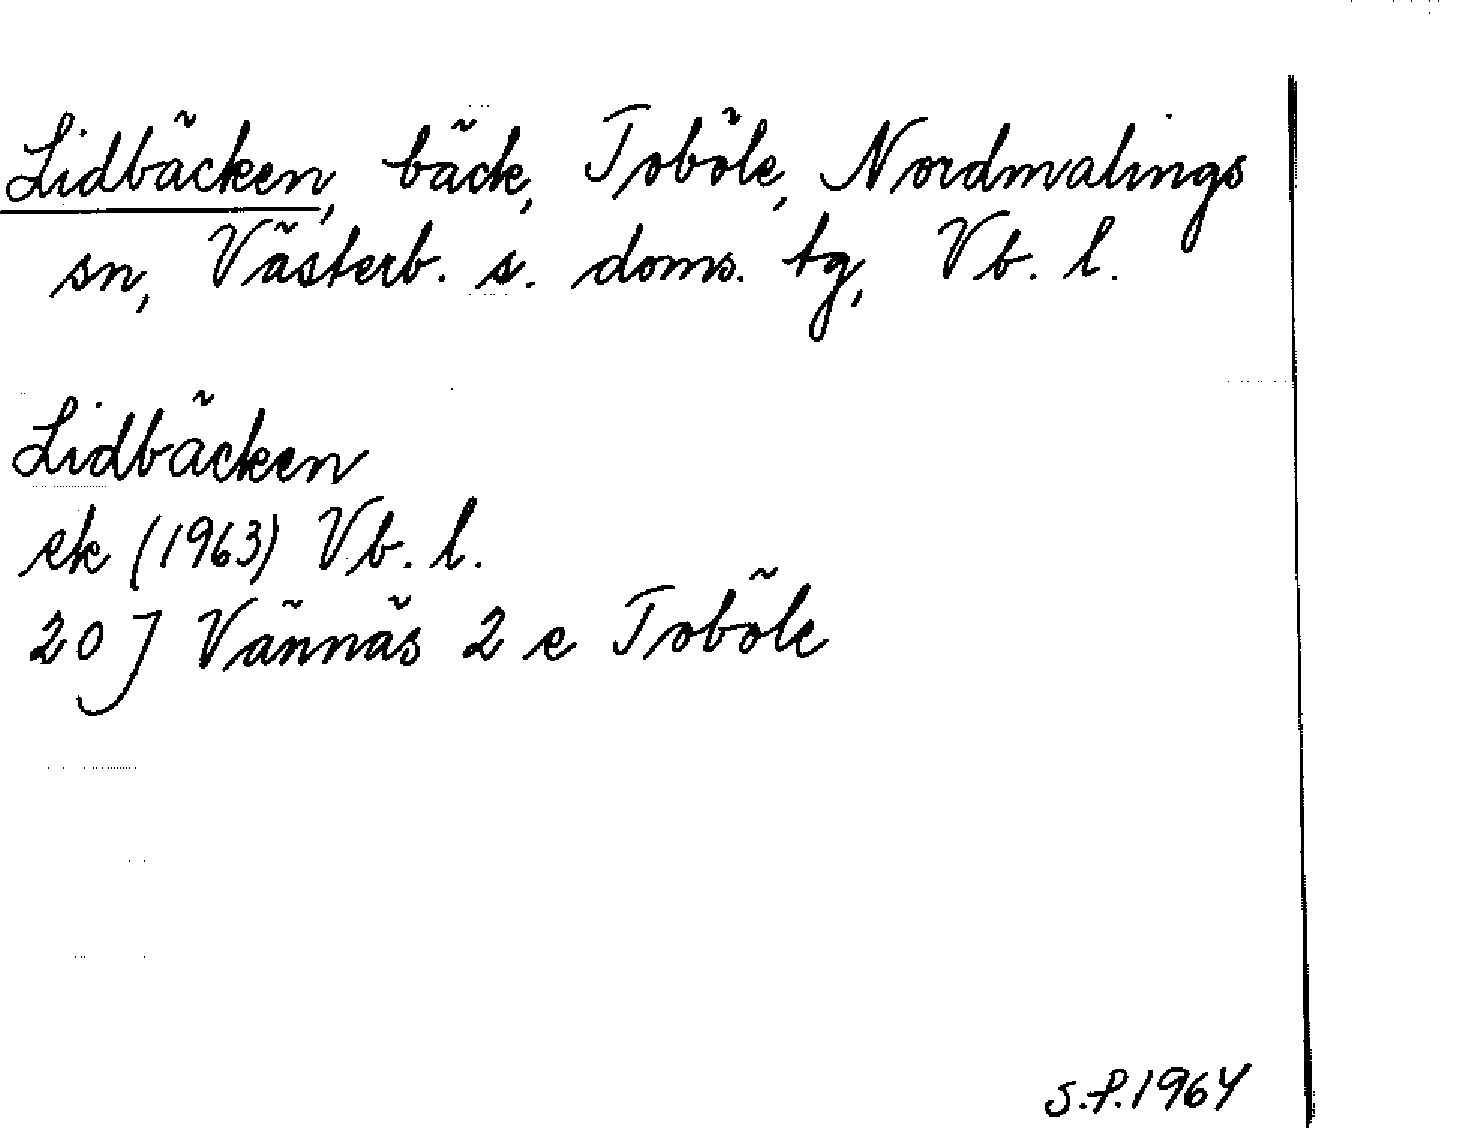 Lidbäcken, bäck, Toböle, Nordmalings
sn, Västerb. s. doms. tg, Vb. l.
Lidbäcken
ek (1963) Vb. l.
20 J Vännäs 2 e Toböle
S.f. 1964